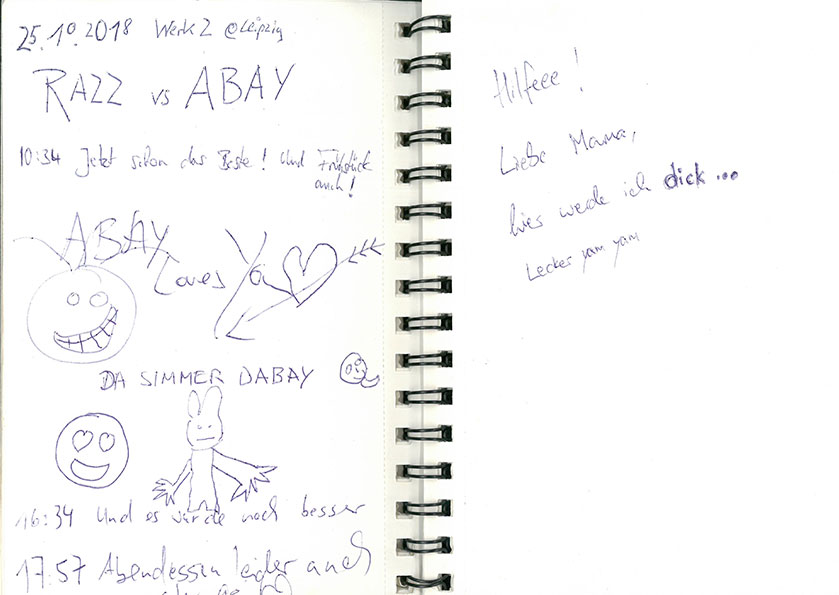 25.10.2018 Werk 2 @Leipzig
RAZZ vs ABAY
10:34 Jetzt schon das Beste! Und Frühstück
auch!
ABAY
Loves Ya
DA SIMMER DABAY
16:34 Und es würde noch besser
17:57 Abendessen leider auch
Hilfeee!
Liebe Mama,
hier werde ich dick...
Lecker yam yam